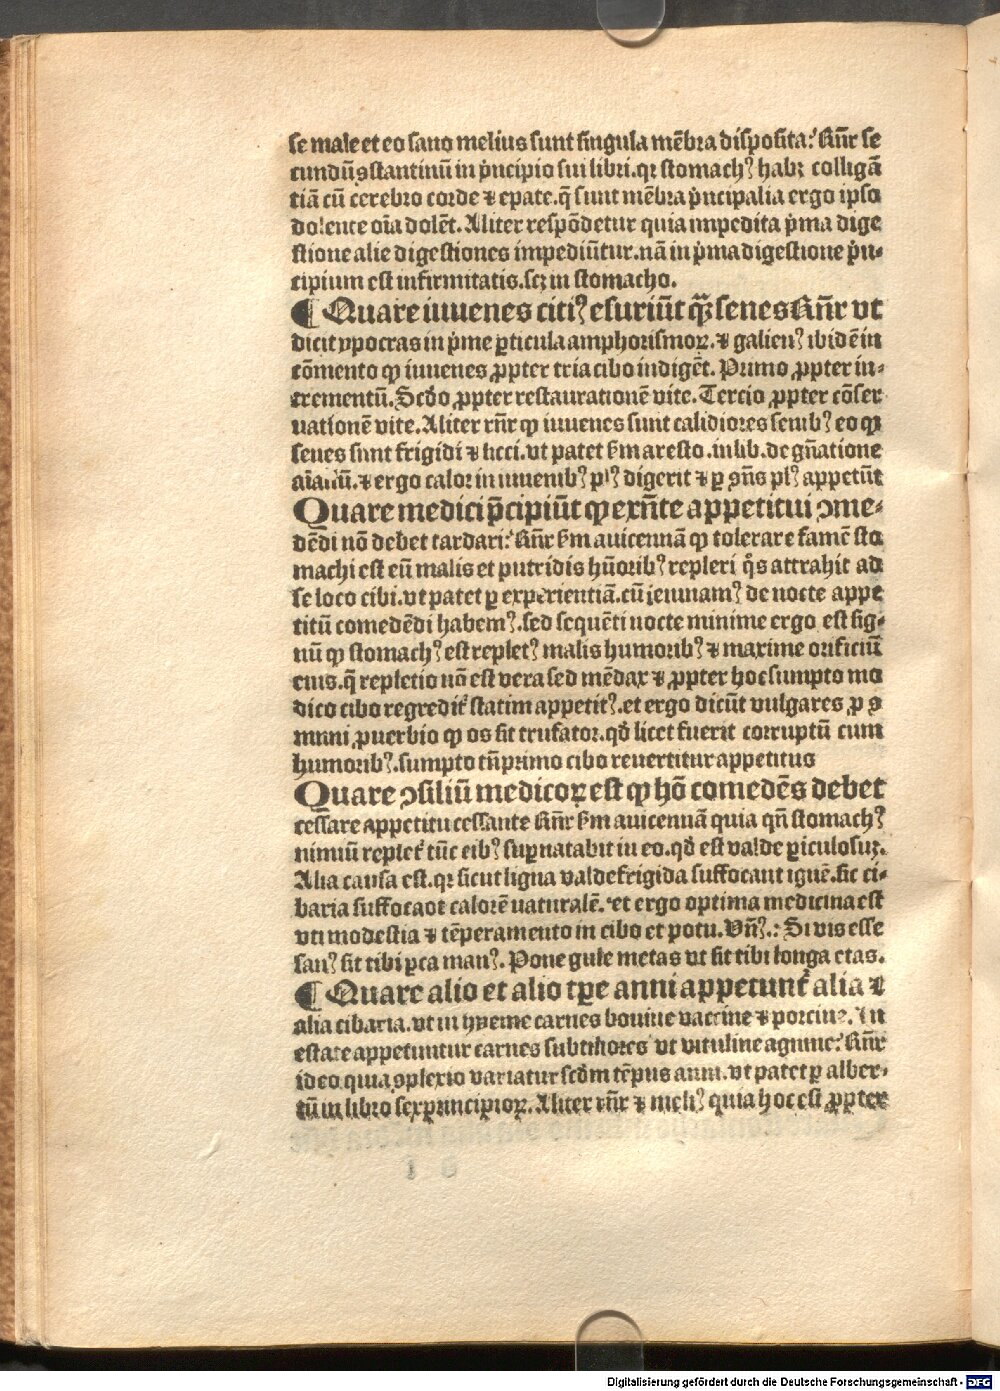 se male et eo sano melius sunt singula mēbra disposita: Rñr se
cundū ꝯstantinū in p̄ncipio sui libri. qr stomachꝰ habꝫ colligā
tiā cū cerebro corde ⁊ epate. q̄ sunt mēbra p̄ncipalia ergo ipso
dolente oīa dolēt. Aliter respōdetur quia impedita p̄ma dige
stione alie digestiones impediūtur. nā in p̄ma digestione p̄n-
cipium est infirmitatis. scꝫ in stomacho.
¶ Quare iuuenes citiꝰ esuriūt q̄ȝ senes Rñr vt
dicit ypocras in p̄me ꝑticula amphorismoꝝ. ⁊ galienꝰ ibidē in
cōmento ꝙ iuuenes ꝓpter tria cibo indigēt. Primo ꝓpter in-
crementū. Scd̄o ꝓpter restaurationē vite. Tercio ꝓpter cōser
uationē vite. Aliter rñr ꝙ iuuenes sunt calidiores senibꝰ eo ꝙ
senes sunt frigidi ⁊ sicci. vt patet s̄m aresto. in lib. de gn̄atione
aīaliū. ⁊ ergo calor in iuuenibꝰ plꝰ digerit ⁊ ꝑ ꝯn̄s plꝰ appetūt
Quare medici p̄cipiūt ꝙ exn̄te appetitui ꝯme-
dēdi nō debet tardari: Rñr s̄m auicennā ꝙ tolerare famē sto
machi est eū malis et putridis hūoribꝰ repleri q̄s attrahit ad
se loco cibi. vt patet ꝑ experientiā. cū ieiunamꝰ de nocte appe
titū comedēdi habemꝰ. sed sequēti nocte minime ergo est sig-
nū ꝙ stomachꝰ est repletꝰ malis humoribꝰ ⁊ maxime orificiū
eius. q̄ repletio nō est vera sed mēdax ⁊ ꝓpter hoc sumpto mo
dico cibo regredit̄ statim appetitꝰ. et ergo dicūt vulgares ꝓ ꝯ
muni ꝓuerbio ꝙ os sit trufator. qd̄ licet fuerit corruptū cum
humoribꝰ. sumpto tn̄ primo cibo reuertitur appetitus
Quare ꝯsiliū medicoꝝ est ꝙ hō comedēs debet
cessare appetitu cessante Rñr s̄m auicennā quia qn̄ stomachꝰ
nimiū replet̄ tūc cibꝰ suꝑnatabit in eo. qd̄ est valde ꝑiculosuꝫ.
Alia causa est. qr sicut ligna valde frigida suffocant ignē. sic ci-
baria suffocāt calorē naturalē. et ergo optima medicina est
vti modestia ⁊ tēperamento in cibo et potu. Vn̄ꝰ.: Si vis esse
sanꝰ sit tibi ꝑca manꝰ. Pone gule metas vt sit tibi longa etas.
¶ Quare alio et alio tꝑe anni appetunt̄ alia ⁊
alia cibaria. vt in hyeme carnes bouine vaccine ⁊ porcine. In
estate appetuntur carnes subtiliores vt vituline agnine: Rñr
ideo quia ꝯplexio variatur scd̄m tēpus anni. vt patet ꝑ alber-
tū in libro sex principioꝝ. Aliter rñr ⁊ meliꝰ quia hoc est ꝓpter